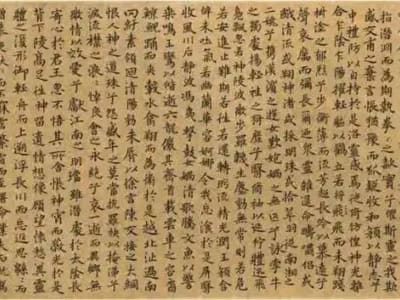 指潛淵而為期執眷眷之款實兮懼斯靈之我欺
感交甫之棄言悵猶豫而狐疑收和顏以靜志兮
申禮防以自持於是洛靈感焉徙倚彷徨神光離
合乍陰乍陽擢輕軀以鶴立若將飛而未翔踐
椒塗之郁烈兮步蘅薄而流芳超長吟以慕遠兮
聲哀厲而彌長爾迺眾靈雜遝命疇嘯侶或
戲清流或翔神渚或採明珠或拾翠羽從南湘之
二妃兮攜漢濱之遊女歎匏媧之無匹兮詠牽牛
之獨處揚輕袿之猗靡兮翳脩袖以延佇體迅飛
鳧飄忽若神陵波微步羅襪生塵動無常則若
危若安進止難期若往若還轉眄流精光潤玉顏含
辭未吐氣若幽蘭華容婀娜令我忘飡於是屏翳
收風川后靜波馮夷擊鼓女媧清歌騰文魚以警
乘鳴玉鸞以偕逝六龍儼其齊首載雲車之容裔
鯨鯢踊而夾轂水禽翔而為衛於是越北沚過南
岡紆素領迴清陽動朱脣以徐言陳交接之大綱
恨人神之道殊兮怨盛年之莫當抗羅袂以掩涕兮
淚流襟之浪浪悼良會之永絕兮哀一逝而異鄉無
微情以效愛兮獻江南之明璫雖潛處於太陰長
寄心於君王忽不悟其所舍悵神宵而蔽光於是
背下陵高足往神留遺情想像顧望懷愁冀靈
體之復形御輕舟而上遡浮長川而忘返思緜緜而